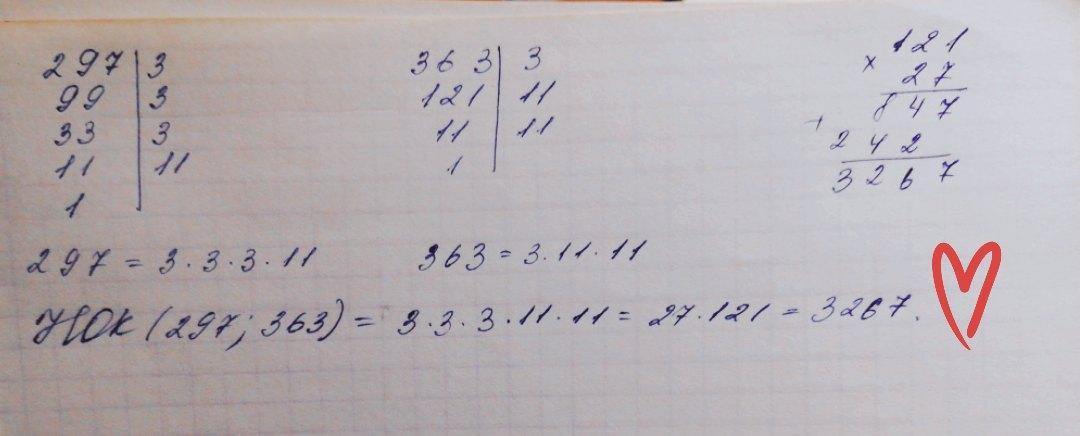 297 | 3
99 | 3
33 | 3
11 | 11
1
363 | 3
121 | 11
11 | 11
1
121
× 27
847
+ 242
3267
297 = 3·3·3·11
363 = 3·11·11
НОК (297; 363) = 3·3·3·11·11 = 27·121 = 3267.